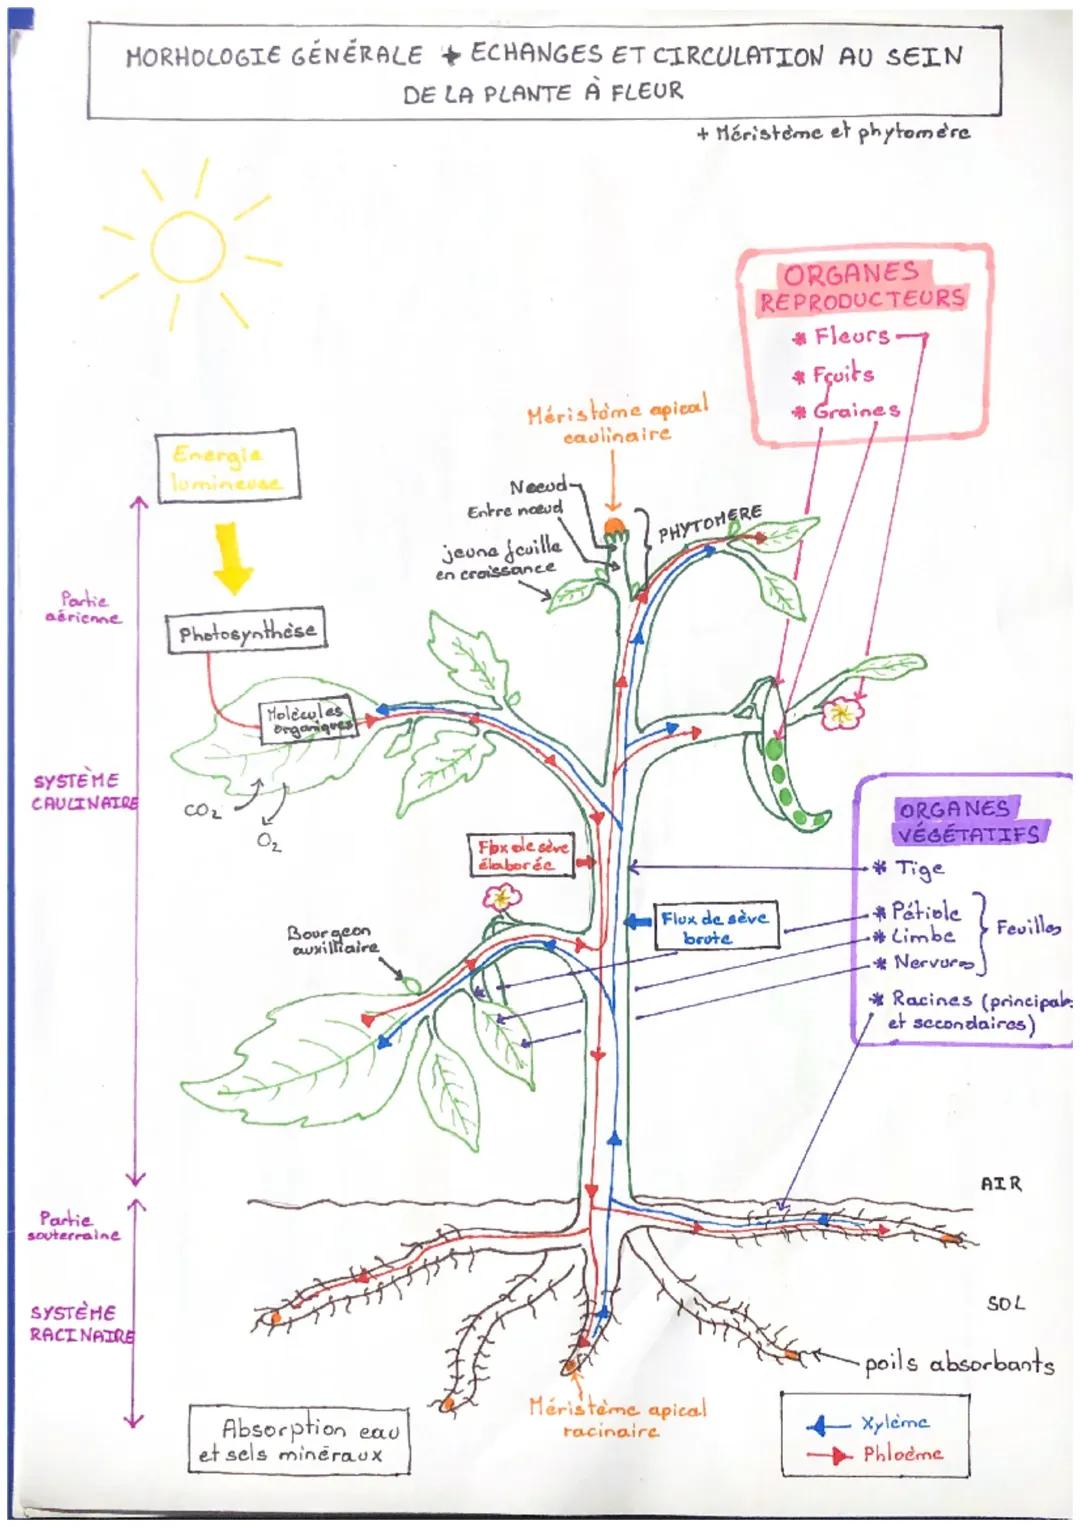 MORHOLOGIE GÉNÉRALE + ECHANGES ET CIRCULATION AU SEIN
DE LA PLANTE À FLEUR
+ Méristème et phytomère
ORGANES
REPRODUCTEURS
* Fleurs
* Fruits
* Graines
Méristème apical
caulinaire
Energie
lumineuse
Noeud
Entre noeud
PHYTOMERE
jeune feuille
en croissance
Partie
aérienne
Photosynthèse
Molécules
organiques
SYSTÈME
CAULINAIRE
CO2
O2
ORGANES
VÉGÉTATIFS
* Tige
* Pétiole
* Limbe
* Nervures
Feuilles
* Racines (principale
et secondaires)
Flux de sève
élaborée
Flux de sève
brute
Bourgeon
auxilliaire
AIR
Partie
souterraine
SYSTÈME
RACINAIRE
SOL
poils absorbants
Méristème apical
racinaire
Absorption eau
et sels minéraux
Xylème
Phloème